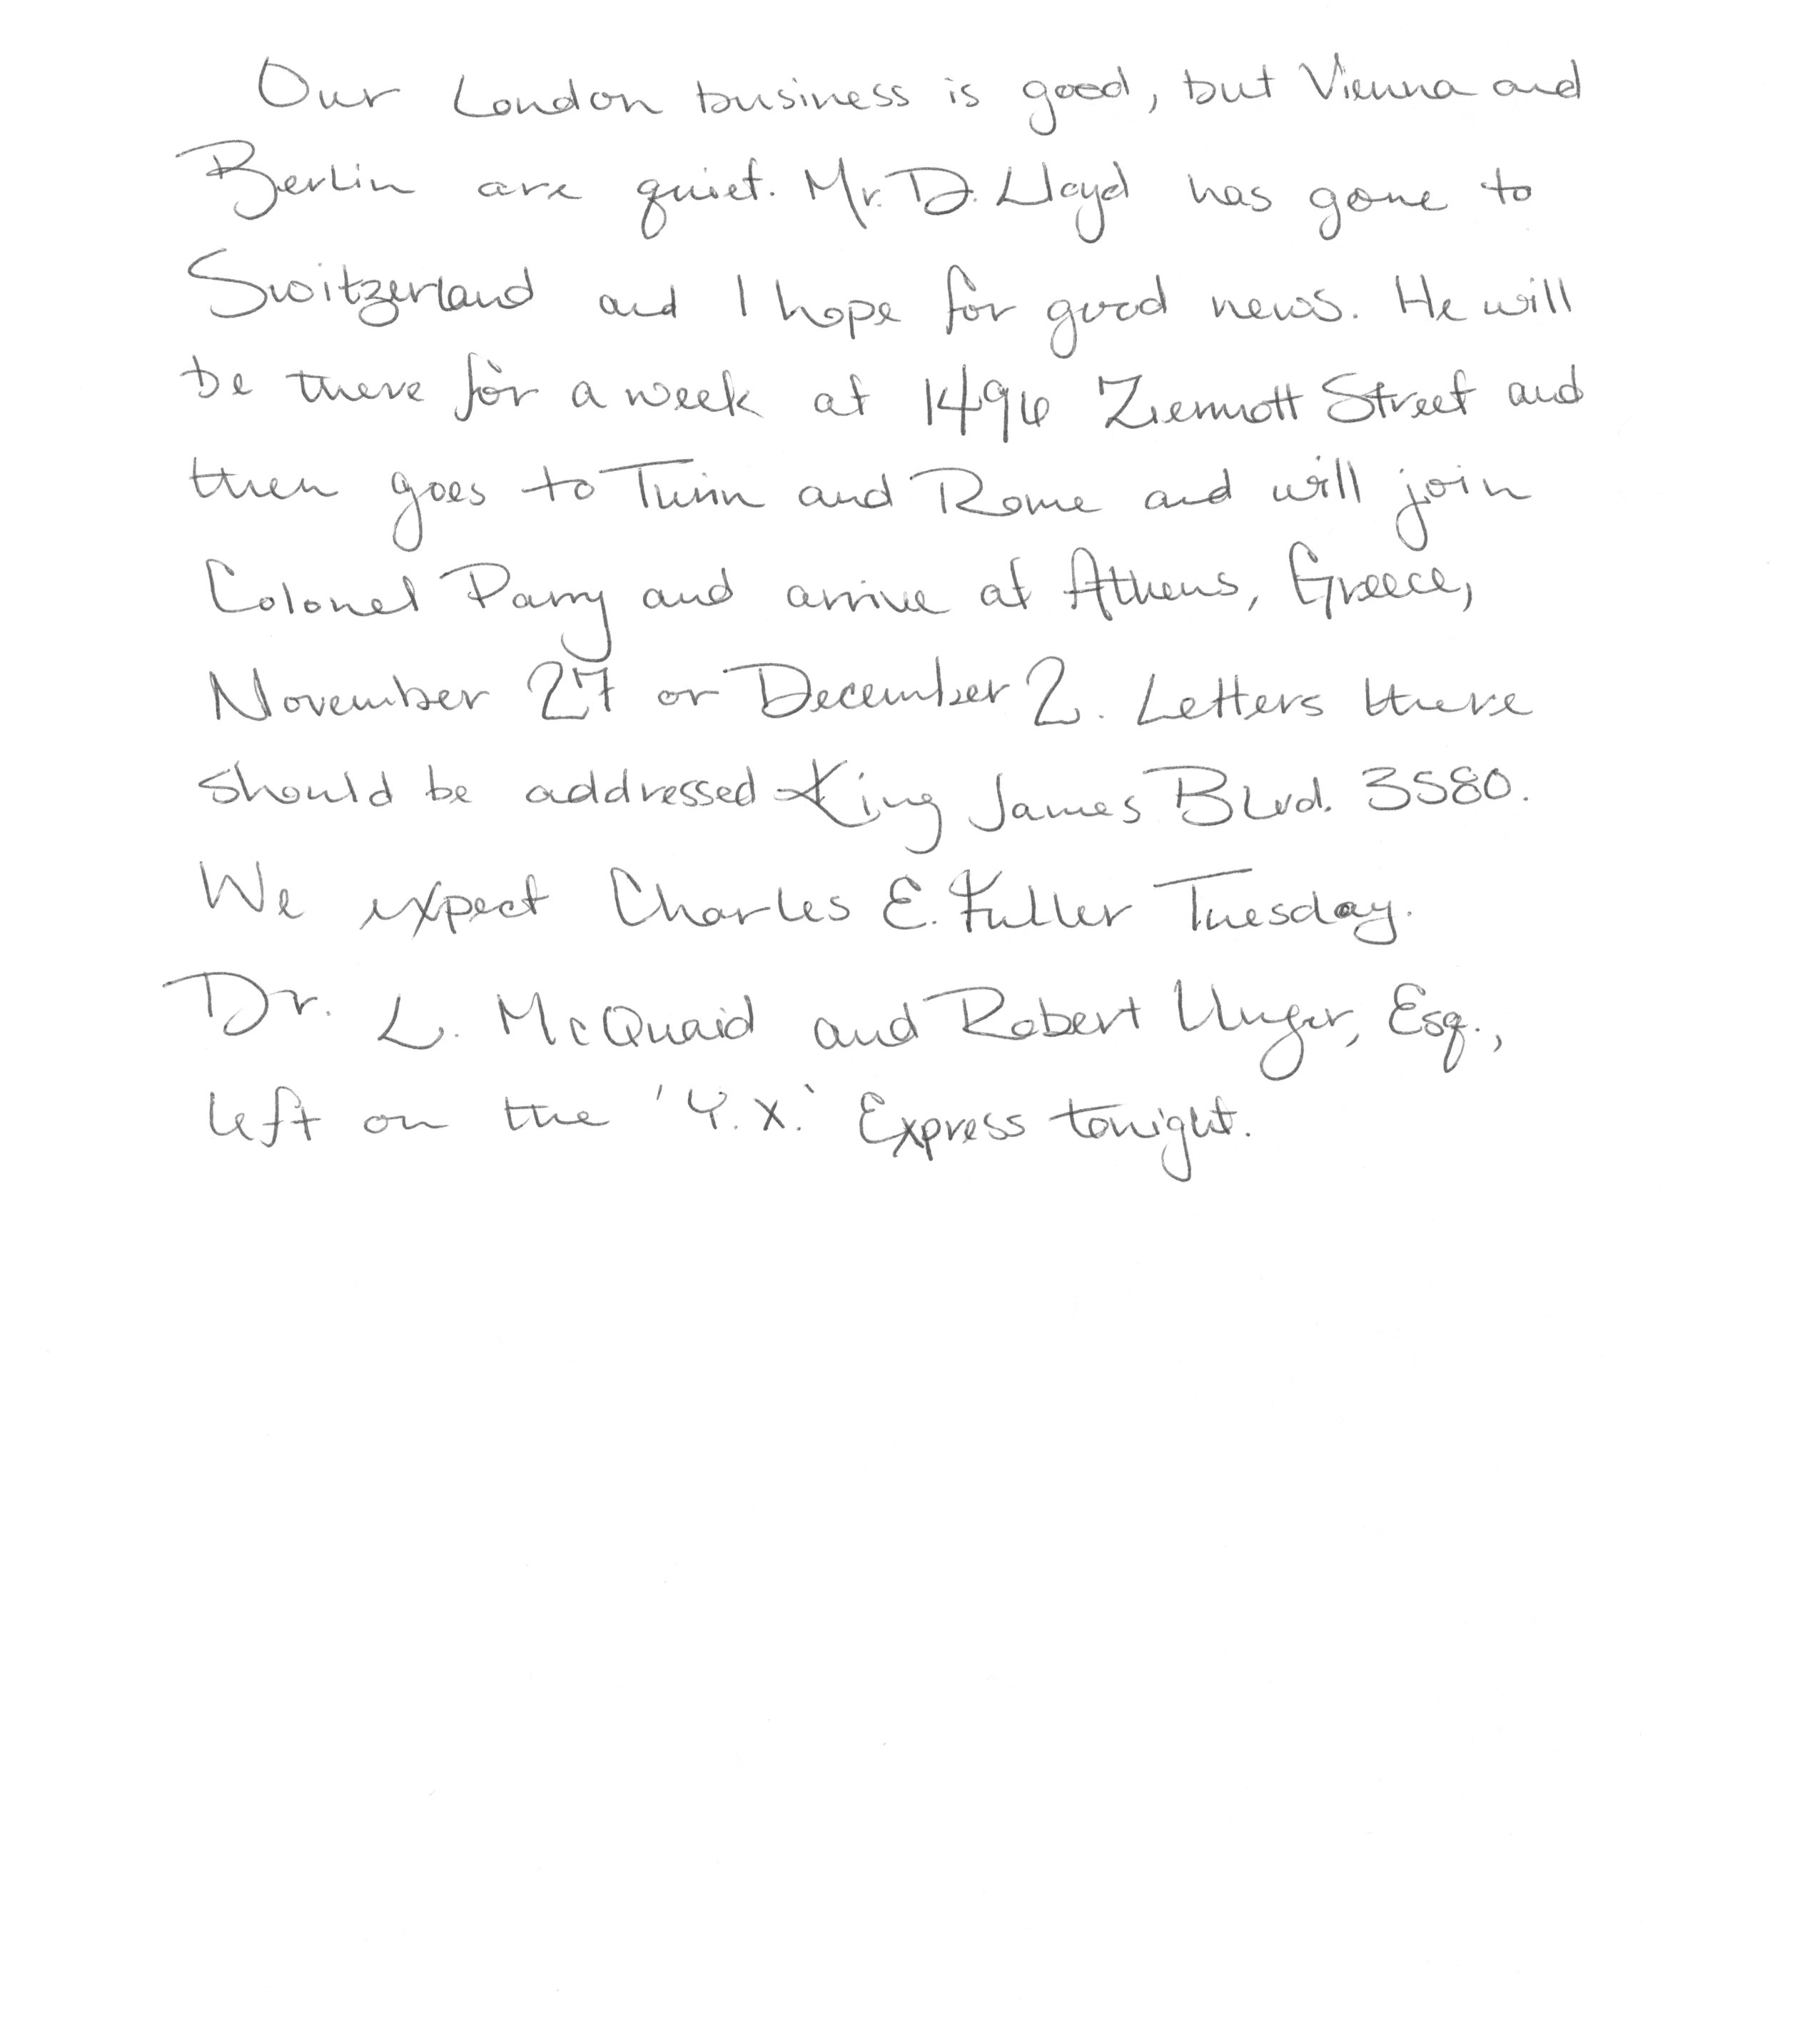 Our London business is good, but Vienna and
Berlin are quiet. Mr. D. Lloyd has gone to
Switzerland and I hope for good news. He will
be there for a week at 1496 Zermott Street and
then goes to Turin and Rome and will join
Colonel Parry and arrive at Athens, Greece,
November 27 or December 2. Letters there
should be addressed King James Blvd. 3580.
We expect Charles E. Fuller Tuesday.
Dr. L. McQuaid and Robert Unger, Esq.,
left on the 'Y.X.' Express tonight.